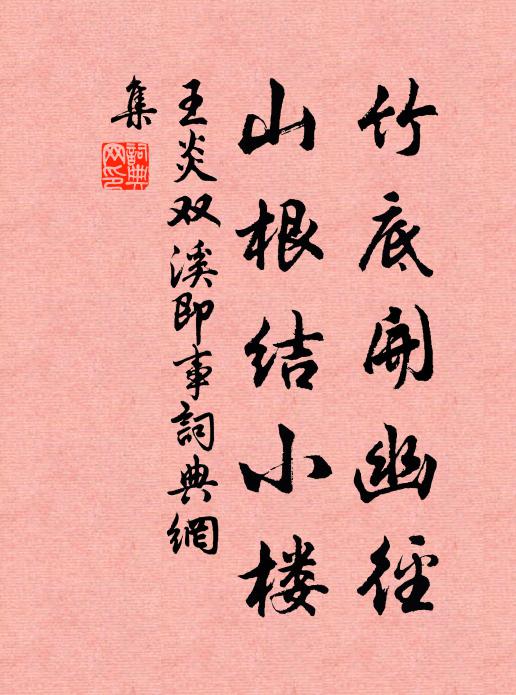 竹底开幽径
山根结小楼
王炎双溪即事詞典網
集
詞典
网印